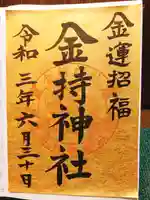 金運招福
金持神社
令和三年六月三十日